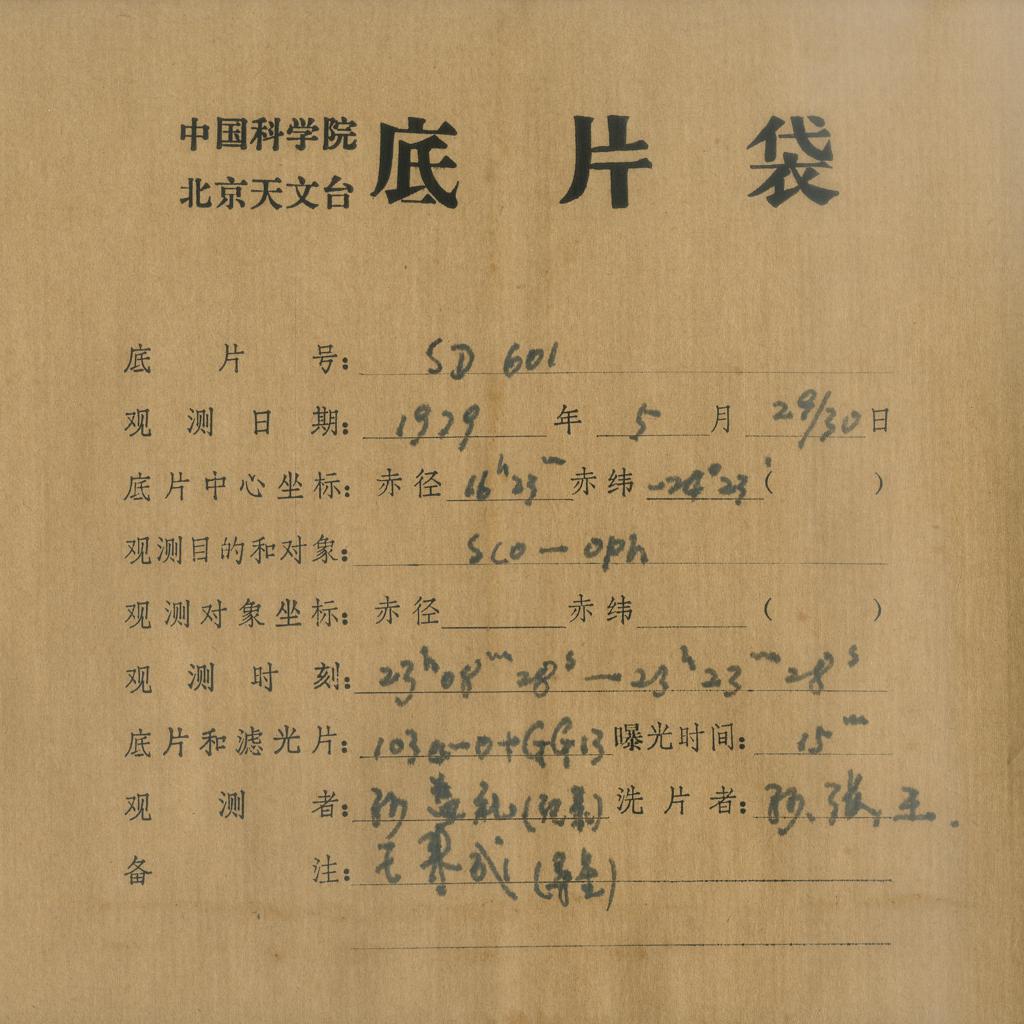 中国科学院
北京天文台
底片袋
底片号: SD 601
观测日期: 1979 年 5 月 29/30 日
底片中心坐标: 赤径 16ʰ23ᵐ 赤纬 -24°23′ ( )
观测目的和对象: Sco — oph
观测对象坐标: 赤径 赤纬 ( )
观测时刻: 23ʰ08ᵐ28ˢ — 23ʰ23ᵐ28ˢ
底片和滤光片: 103a-O+GG13 曝光时间: 15ᵐ
观测者: 孙益礼 洗片者: 孙、张、王.
备注: 王